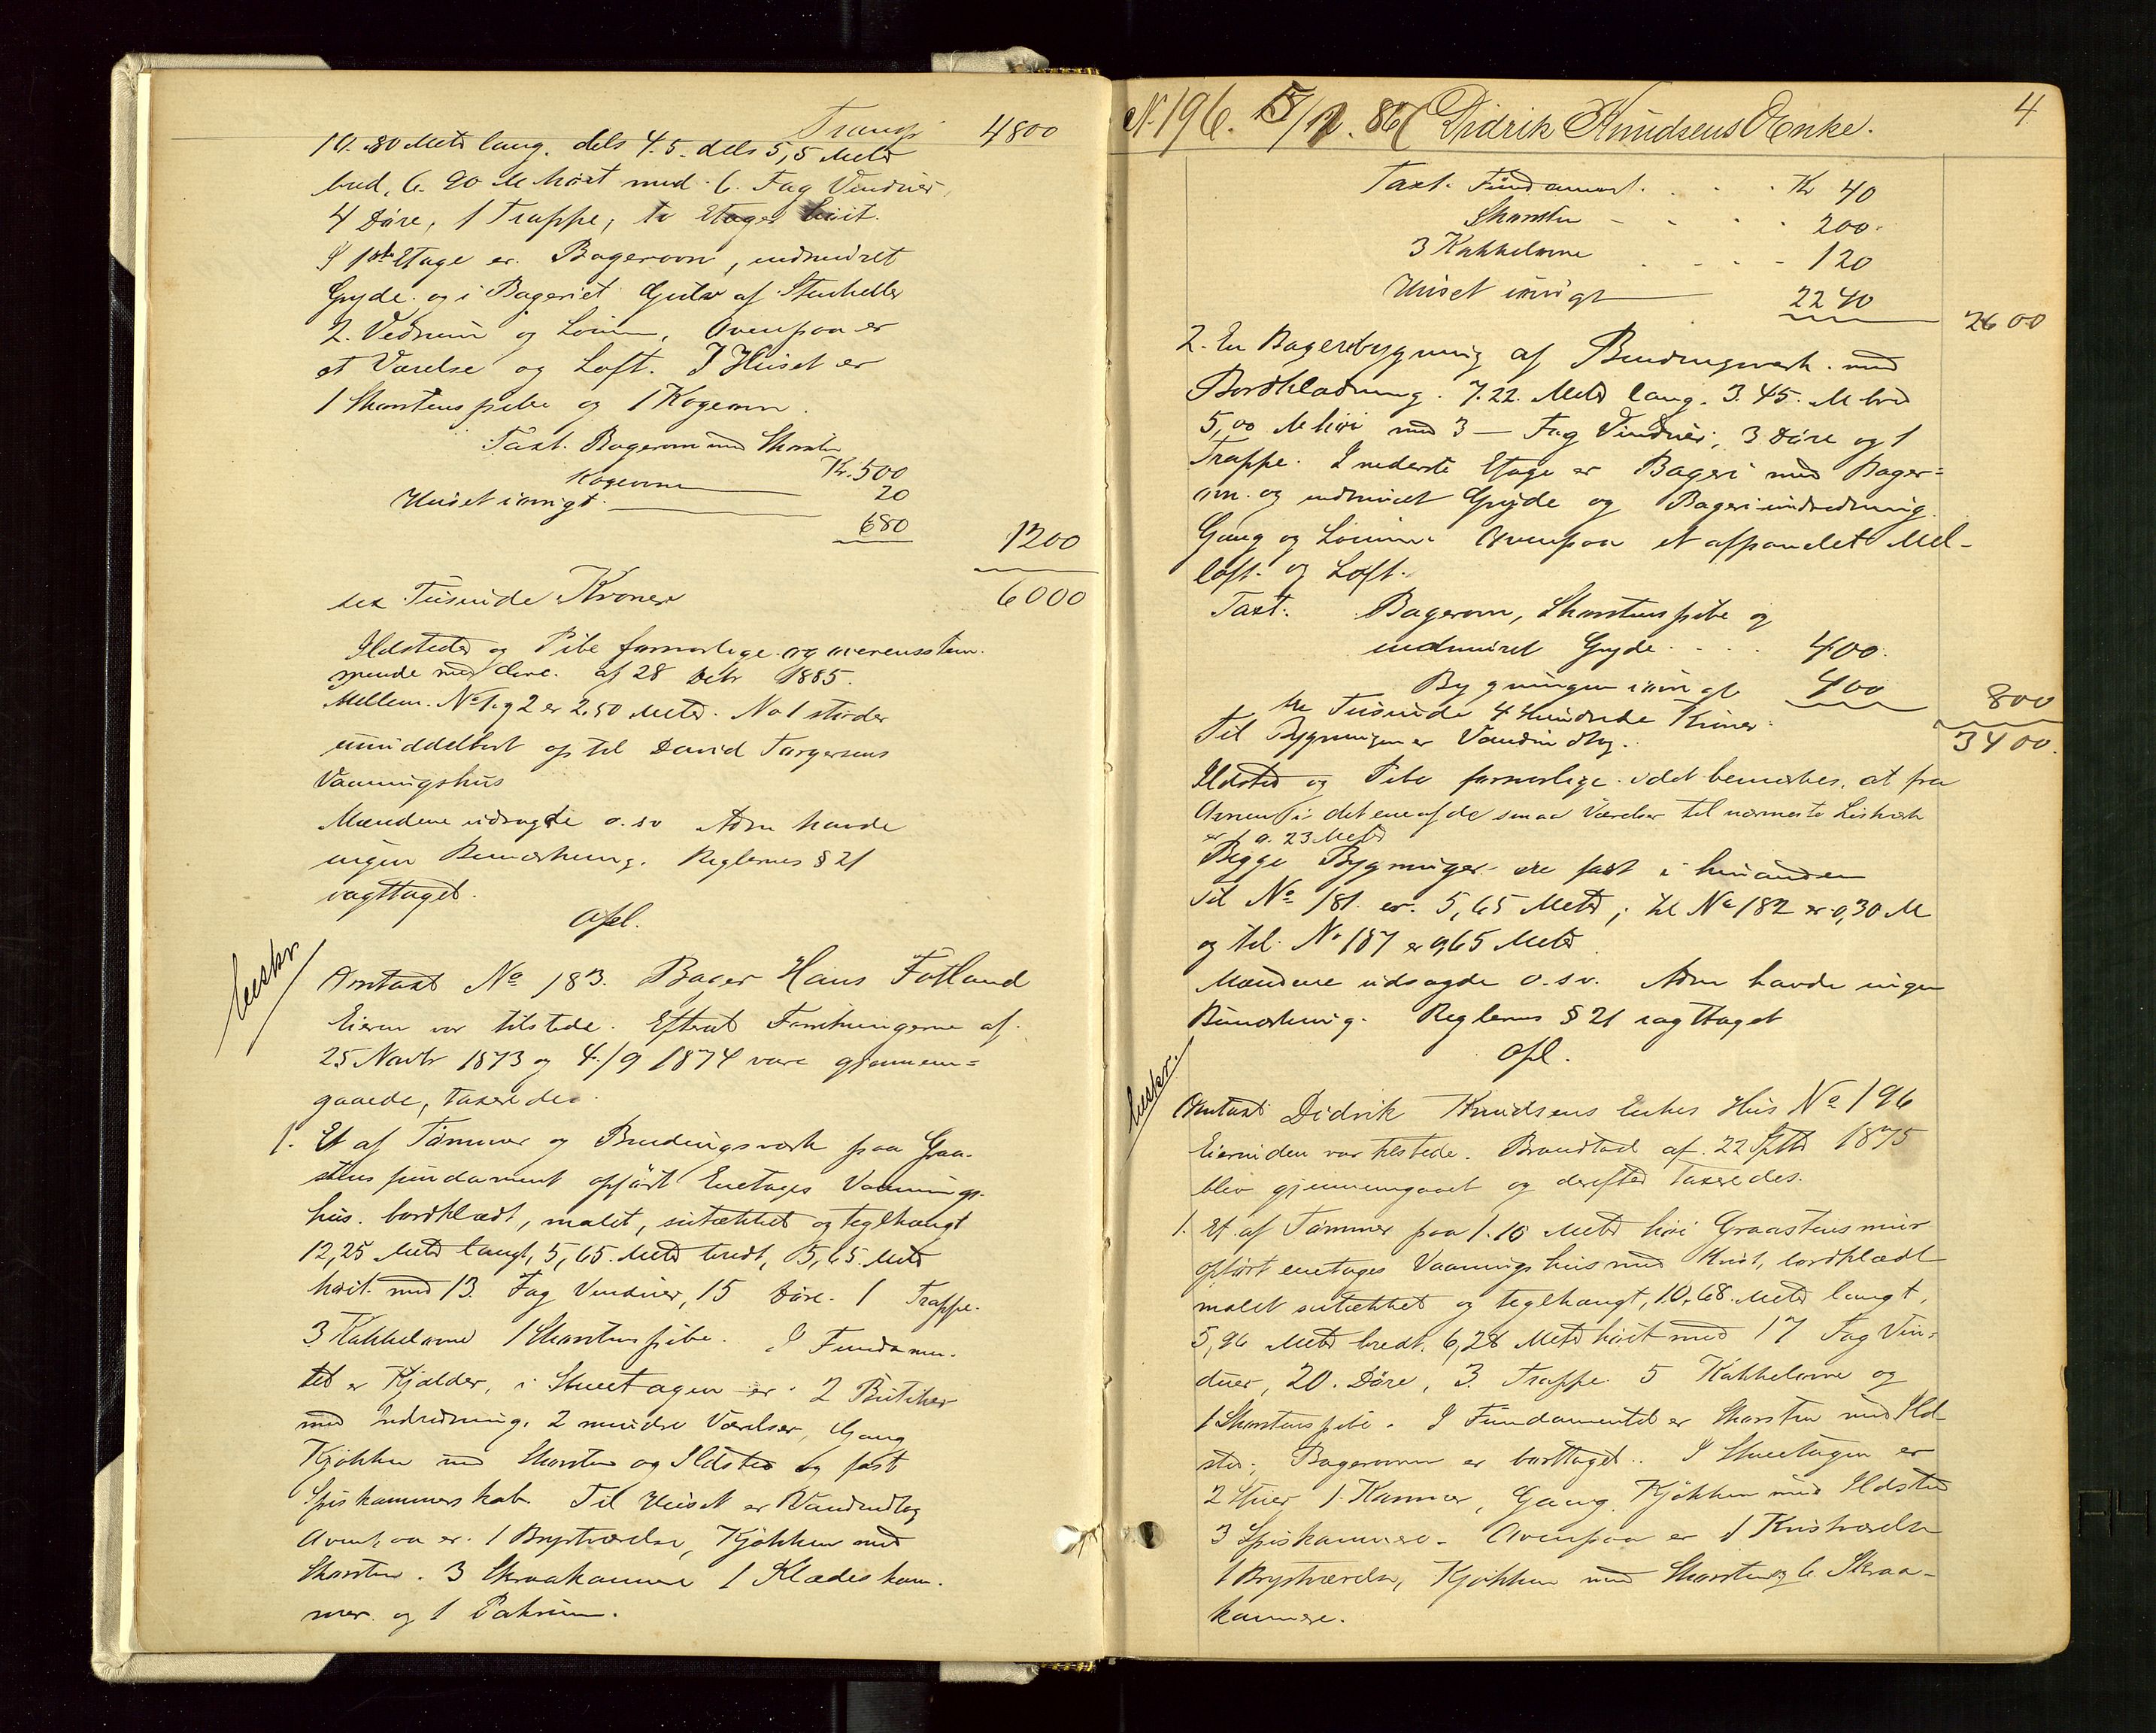 Transp 4800
10.80 Meter lang. dels 4.5. dels 5,5 Meter
bred, 6.90 M höit med 6. Fag Vinduer,
4 Döre, 1 Trappe, to Etager höit.
I 1ste Etage er. Bagerovn, indmuret
Gryde. og i Bageriet Gulv af Stenheller
2. Vedrum og Lemm, Ovenpaa er
et Værelse og Loft. I Huset er
1 Skorstenspibe og 1 Kogeovn.
Taxt. Bagerovn med Skorsten
Kr. 500
Kogeovne 20
Huset iövrigt. 680
1200
sex Tusinde Kroner 6000
Ildsteder og Pibe forsvarlige og overensstem-
mende med Anv. af 28 Octr 1885.
Mellem No 1 og 2 er 2,50 Meter. No 1 stöder
umiddelbart op til David Torgersens
Vaaningshus
Mændene udsagde o.sv Adm havde
ingen Bemærkning. Reglernes § 21
iagttaget.
Opl.
Omtaxt No 183. Bager Hans Fotland
Eieren var tilstede. Efterat Forretningerne af
25 Novbr 1873 og 4/9 1874 vare gjennem=
gaaede, taxeredes.
1. Et af Tömmer og Bindingsværk paa Graa-
stens fundament opfört Enetages Vaanings-
hus. bordklædt, malet, sutækket og teglhængt
12,25 Meter langt, 5,65. Meter bredt, 5,65. Meter
höit. med 13. Fag Vinduer, 15 Döre. 1 Trappe.
3 Kakkelovne 1 Skorstenspibe. I Fundamen-
tet er Kjælder, i Stueetagen er 2 Butiker
med Indredning. 2 mindre Værelser, Gang
Kjökken med Skorsten og Ildsted og fast
Spiskammerskab. Til Huset er Vandindlæg
Ovenpaa er. 1 Brystværelse, Kjökken med
Skorsten. 3 Skraakammer 1 Klædeskam-
mer. og 1 Pakrum.
No 196. /12. 86 Didrik Knudsens Enke. 4
Taxt. Fundament. Kr 40
Skorsten 200.
3 Kakkelovne 120
Huset iövrigt 2240
2600
2. En Bageribygning af Bindingsværk. med
Bordklædning. 7.22. Meter lang. 3.45. M bred
5,00 M höi med 3 — Fag Vinduer, 3 Döre og 1
Trappe. I nederste Etage er Bageri med Bager=
ovn. og indmuret Gryde og Bageriindredning.
Gang og Lemm. Ovenpaa et afpanelet Mel-
loft. og Loft.
Taxt. Bagerovn, Skorstenspibe og
indmuret Gryde. 400.
Bygningen iövrigt 400
800
tre Tusinde 4 Hundrede Kroner. 3400.
Til Bygningen er Vandindlæg.
Ildsted og Pibe forsvarlige. idet bemærkes, at fra
Ovnen i det ene af de smaa Værelser til nærmeste Listværk
er 0.23 Meter
Begge Bygninger ere fast i hinanden
Til No 181. er. 5,65 Meter; til No 182 er 0,30 M
og til No 187 er 9,65 Meter.
Mændene udsagde o.sv. Adm havde ingen
Bemærkning. Reglernes § 21 iagttaget
Opl.
Omtaxt Didrik Knudsens Enkes Hus No 196
Eierinden var tilstede. Brandtaxt af. 22 Septbr 1875
blev gjennemgaaet og derefter taxeredes.
1. Et af Tömmer paa 1.10 Meter höi Graastensmur
opfört enetages Vaaningshus med Kvist, bordklædt
malet sutækket og teglhængt, 10,68. Meter langt,
5,96 Meter bredt. 6,28 Meter höit med 17 Fag Vin-
duer, 20. Döre, 3. Trappe 5 Kakkelovne og
1 Skorstenspibe. I Fundamentet er Skorsten med Ild-
sted; Bagerovnen er borttaget.. I Stueetagen er
2 Stuer 1. Kammer, Gang. Kjökken med Ildsted
3 Spiskammere. Ovenpaa er 1 Kvistværelse
1 Brystværelse, Kjökken med Skorsten og 6 Skraa-
kammere.